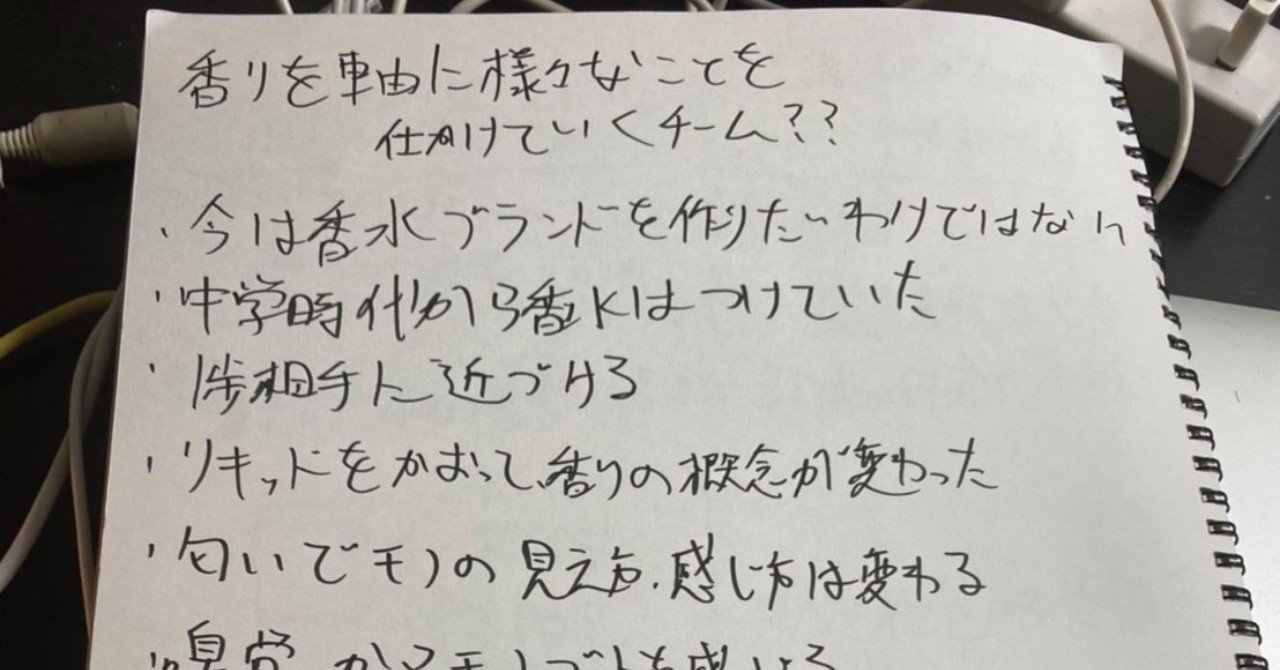 香りを軸に様々なことを
仕かけていくチーム??
・今は香水ブランドを作りたいわけではない
・中学時代から香水はつけていた
・1歩相手に近づける
・リキッドをかおって、香りの概念が変わった
・匂いでモノの見え方・感じ方は変わる